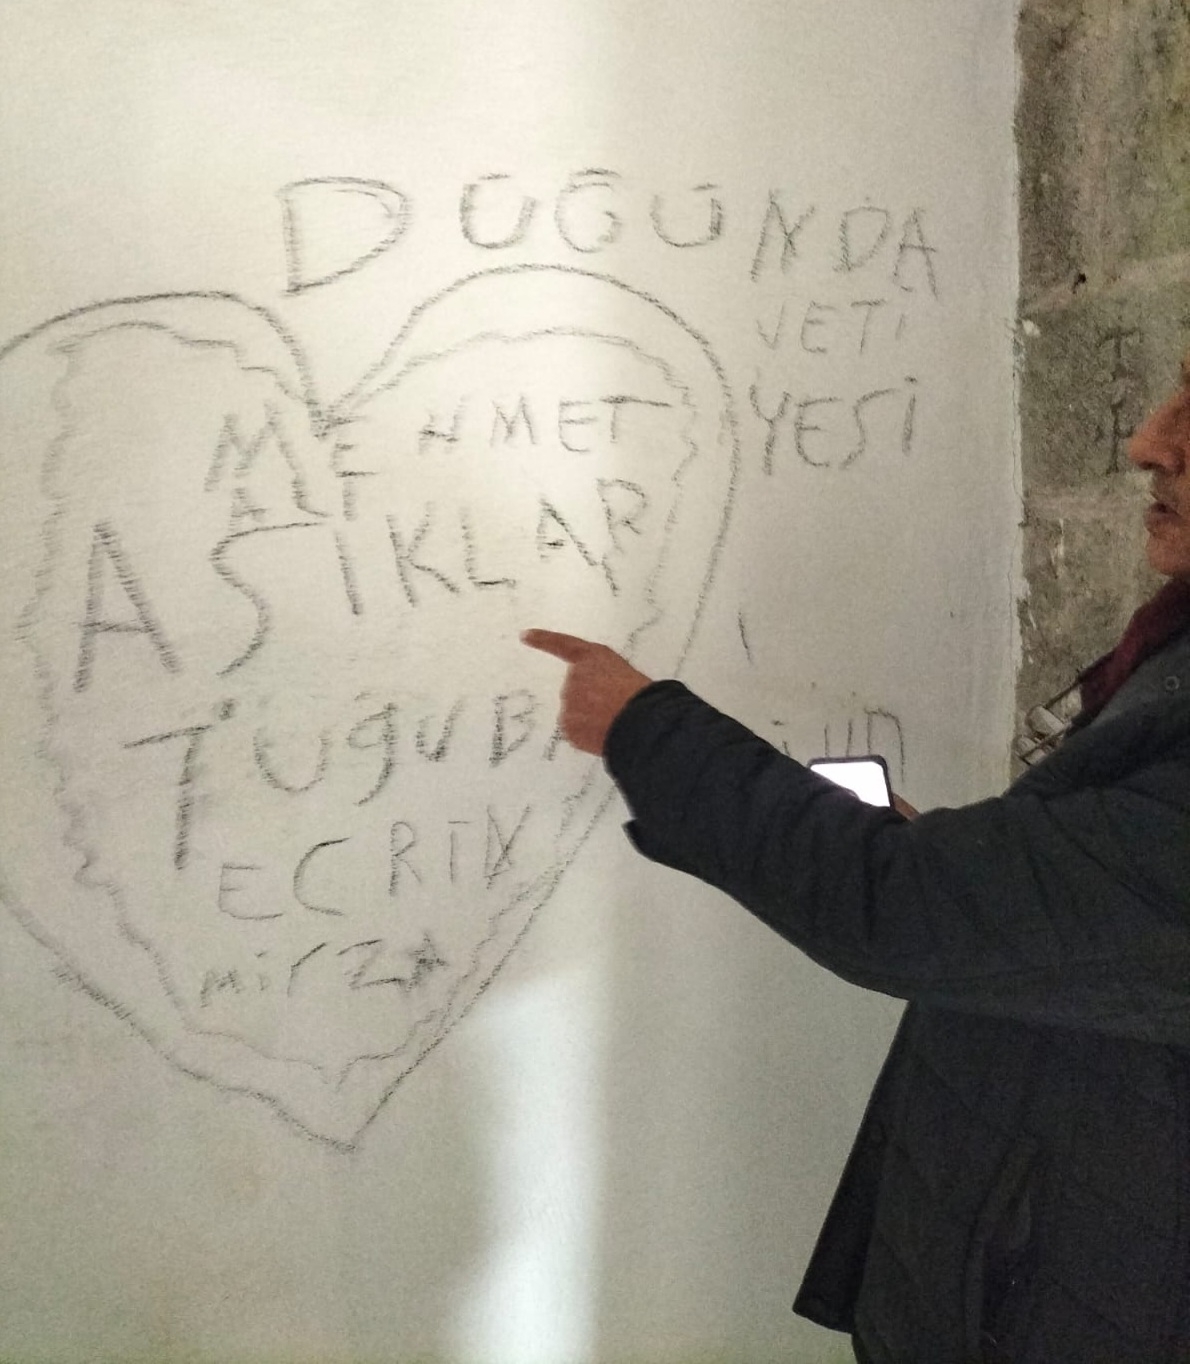 DÜĞÜNDA
VETİ
YESİ
MEHMET
ALİ
ASIKLAR
TUğUBA
ECRİN
MİrZA